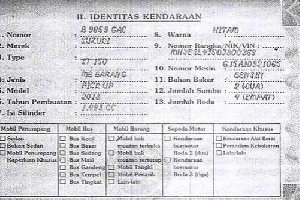 II. IDENTITAS KENDARAAN
1. Nomor : B 9069 GAC
2. Merek : SUZUKI
3. Type
4. Jenis : MB BARANG
5. Model : PICK UP
6. Tahun Pembuatan : 2013
7. Isi Silinder
8. Warna : HITAM
9. Nomor Rangka/NIK/VIN :
10 Nomor Mesin
11 Bahan Bakar : BENSIN
12 Jumlah Sumbu : 2 (DUA)
13 Jumlah Roda : 4 (EMPAT)
Mobil Penumpang Mobil Bus Mobil Barang Sepeda Motor Kendaraan Khusus
Sedan
Bukan Sedan
Mobil Penumpang
Keperluan Khusus
Bus Kecil
Bus Besar
Bus Sedang
Bus Maxi
Bus Gandeng
Bus Tempel
Bus Tingkat
Mobil bak
muatan terbuka
Mobil bak
muatan tertutup
Mobil Tangki
Mobil Penarik
Lain-lain
Kendaraan
bermotor
Roda 2 (dua)
Kendaraan
bermotor
Roda 3 (tiga)
Kendaraan Alat Berat
Pemadam Kebakaran
Lain-lain